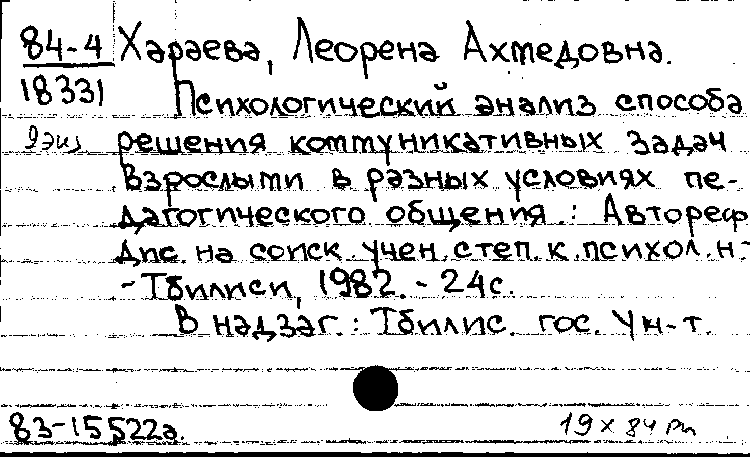 84-4 Хараева, Леорена Ахмедовна.
18331 Психологический анализ способа
решения коммуникативных задач
взрослыми в разных условиях пе-
дагогического общения : Автореф.
дис. на соиск. учен. степ. к. психол. н.-
- Тбилиси, 1982. - 24с.
В надзаг.: Тбилис. гос. Ун-т.
83-15522а. 19 х 84